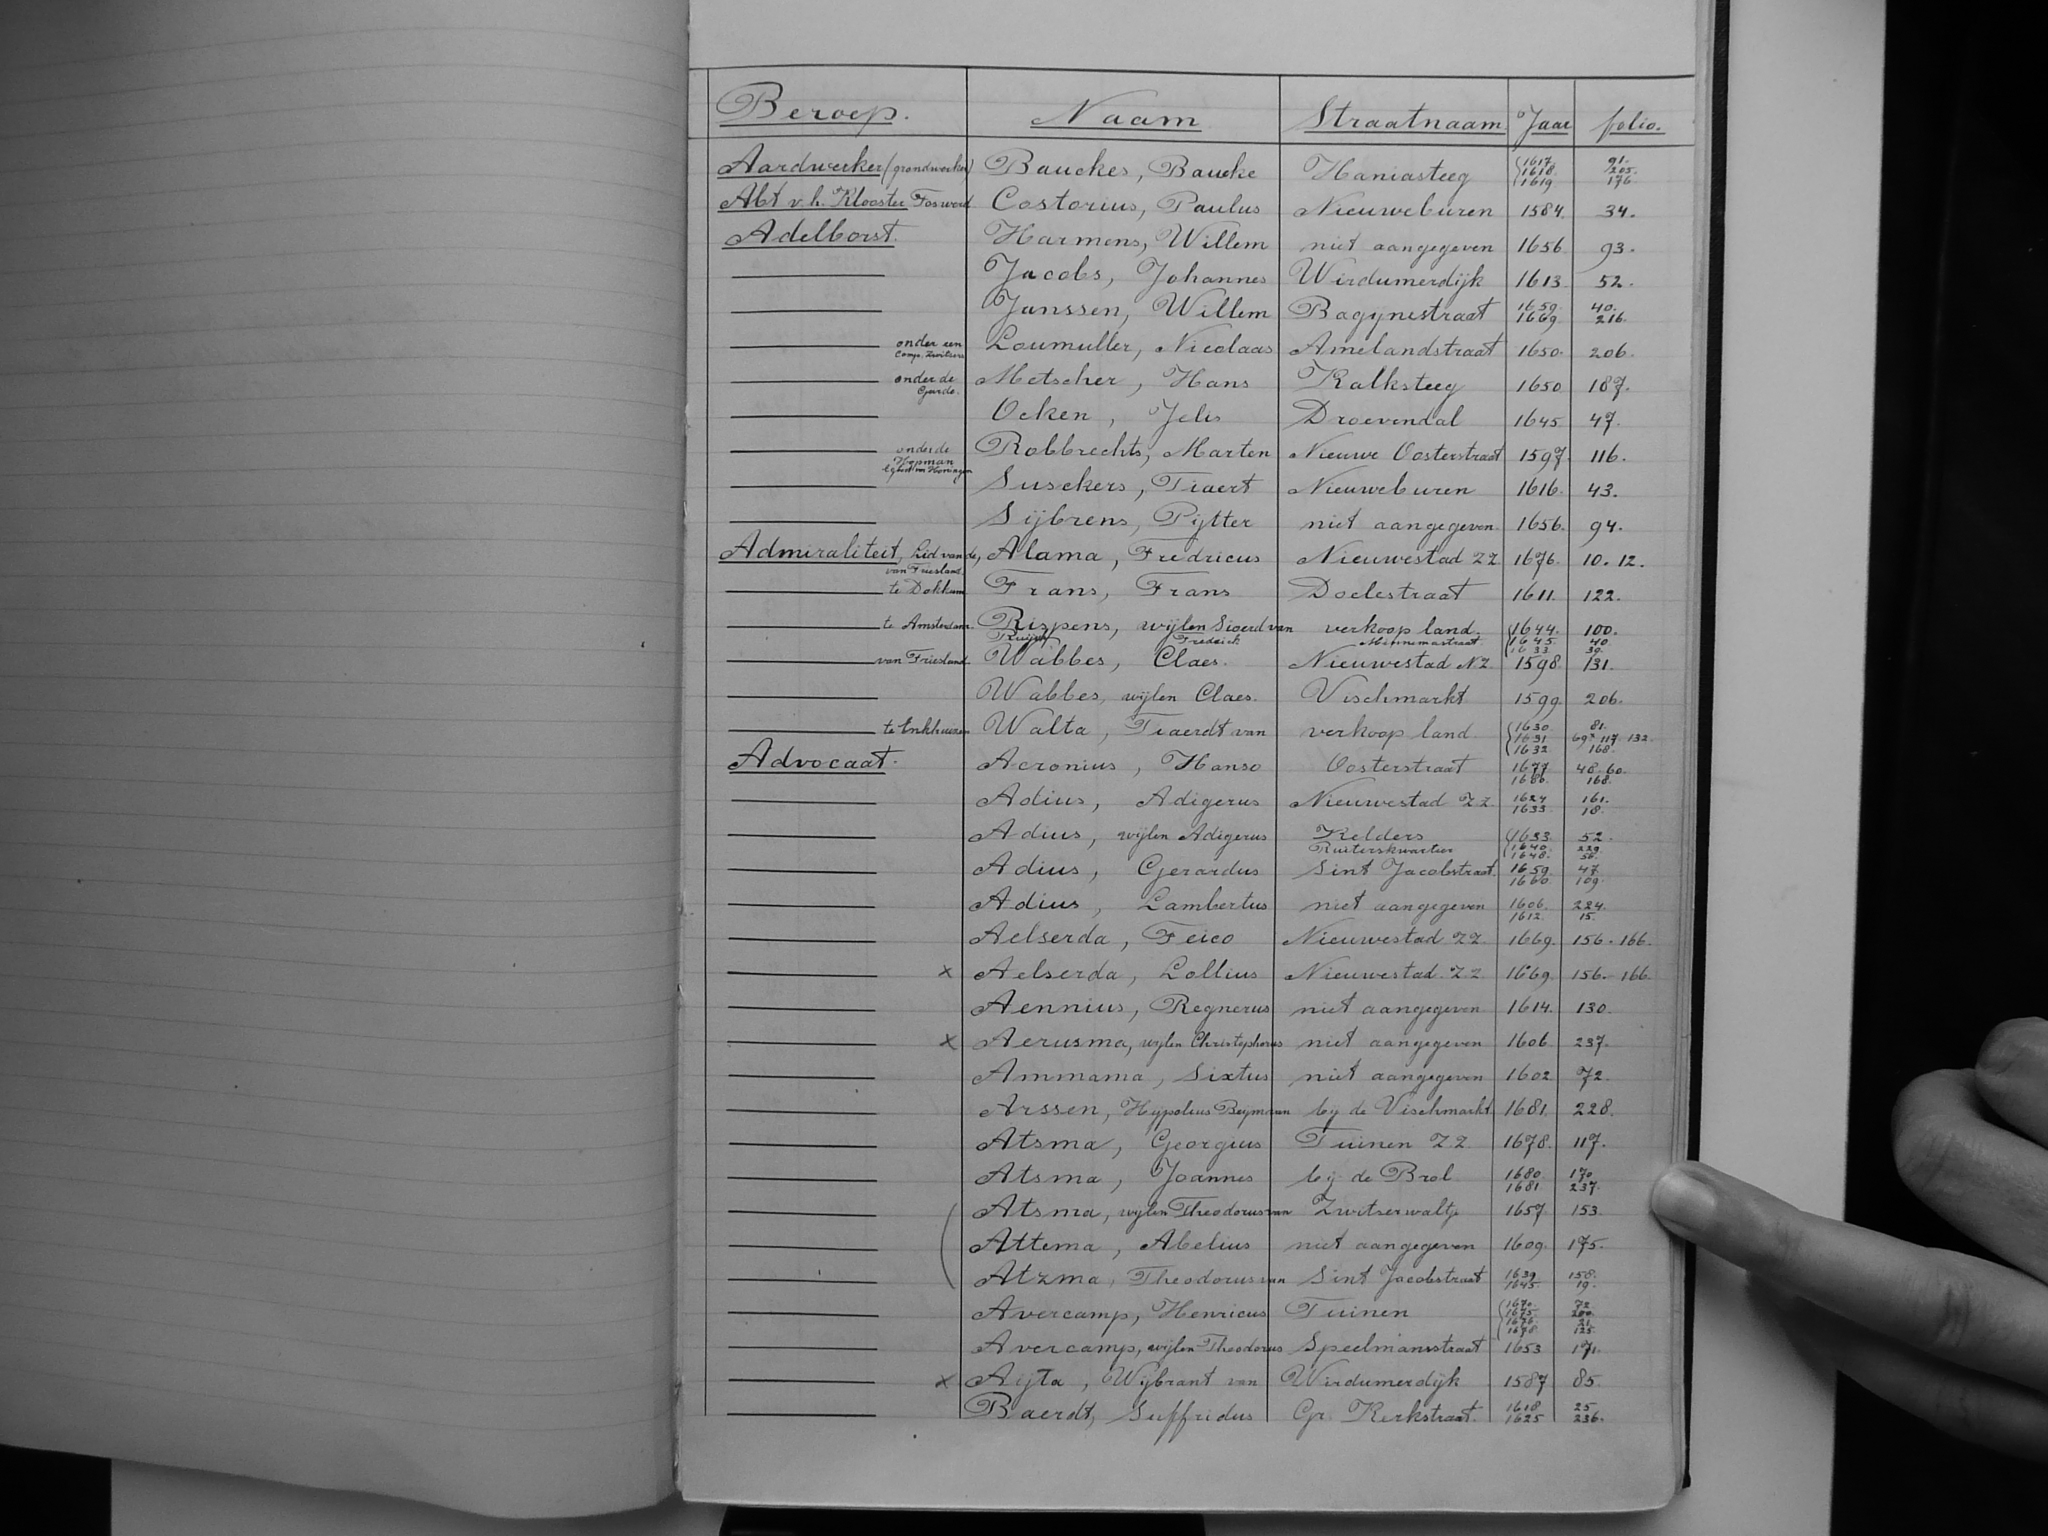 Beroep. Naam Straatnaam Jaar folio.
Aardwerker (grondwerker) Bauckes, Baucke Haniasteeg 1617. 1618. 1619 91. 205. 176
Abt v.h. Klooster Foswerd Costorius, Paulus Nieuweburen 1584. 34.
Adelborst. Harmens, Willem niet aangegeven 1656 93.
Jacobs, Johannes Wirdumerdijk 1613. 52.
Janssen, Willem Bagynestraat 1659. 1669. 40. 216.
onder een Comp. Zwitsers Loumuller, Nicolaas Amelandstraat 1650. 206.
onder de Garde. Metscher, Hans Kalksteeg 1650 187.
Ocken, Jelis Droevendal 1645 47.
onder de Hopman Robbrechts, Marten Nieuwe Oosterstraat 1597. 116.
Susckers, Tiaert Nieuweburen 1616. 43.
Sijbrens, Pijtter niet aangegeven 1656. 94.
Admiraliteit, Lid van de, van Friesland. Alama, Fredricus Nieuwestad ZZ 1676. 10. 12.
te Dokkum Frans, Frans Doelestraat 1611. 122.
te Amsterdam Rispens, wijlen Sioerd van verkoop land. 1644. 100.
Fredrick Minnemastraat 1645 1633 40 39.
van Friesland Wabbes, Claes. Nieuwestad NZ 1598. 131.
Wabbes, wijlen Claes. Vischmarkt 1599. 206.
te Enkhuizen Walta, Tiaerdt van verkoop land 1630 1631 1632 81. 117. 132. 168.
Advocaat. Acronius, Hanso Oosterstraat 1677 1686. 48. 60. 168.
Adius, Adigerus Nieuwestad ZZ 1624 1633. 161. 18.
Adius, wijlen Adigerus Kelders Ruiterskwartier 1633. 1640. 1648. 52. 229. 56.
Adius, Gerardus Sint Jacobstraat. 1659. 1660. 47. 109.
Adius, Lambertus niet aangegeven 1606. 1612. 224. 15.
Aelserda, Feico Nieuwestad ZZ 1669. 156. 166.
x Aelserda, Lollius Nieuwestad ZZ 1669. 156. 166
Aennius, Regnerus niet aangegeven 1614. 130.
x Aerusma, wijlen Christophorus niet aangegeven 1606. 237.
Ammama, Sixtus niet aangegeven 1602 72.
Arssen, Hypolius Beyma van bij de Vischmarkt 1681. 228.
Atsma, Georgius Tuinen ZZ 1678. 117.
Atsma, Joannes bij de Brol 1680. 1681. 170. 237.
Atsma, wijlen Theodorus van Zwitserwaltje 1657. 153.
Attema, Abelius niet aangegeven 1609. 175.
Atzma, Theodorus van Sint Jacobstraat 1639 1645. 158. 19.
Avercamp, Henricus Tuinen 1670. 1675. 1676. 1678. 72. 200. 21. 125.
Avercamp, wijlen Theodorus Speelmansstraat 1653 171.
x Aijta, Wijbrant van Wirdumerdijk 1587 85.
Baerdt, Suffridus Gr. Kerkstraat. 1618 1625 25 236.